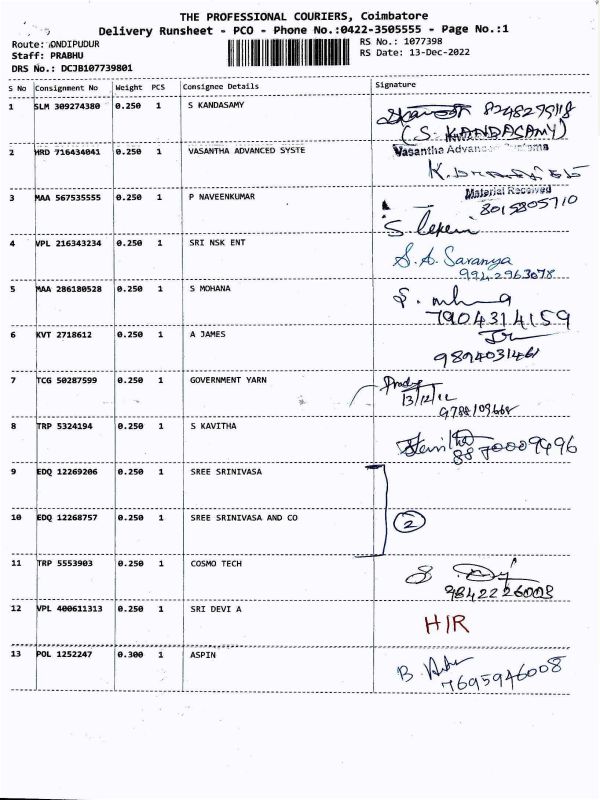 THE PROFESSIONAL COURIERS, Coimbatore
Delivery Runsheet - PCO - Phone No.:0422-3505555 - Page No.:1
Route: ONDIPUDUR
RS No.: 1077398
Staff: PRABHU
RS Date: 13-Dec-2022
DRS No.: DCJB107739801
S No Consignment No Weight PCS Consignee Details Signature
1 SLM 309274380 0.250 1 S KANDASAMY
(S. KANDASAMY)
2 HRD 716434041 0.250 1 VASANTHA ADVANCED SYSTE Vasantha Advanced Systems
Material Received
3 MAA 567535555 0.250 1 P NAVEENKUMAR 8015805710
4 VPL 216343234 0.250 1 SRI NSK ENT S. A. Saranya
9942963078
5 MAA 286180528 0.250 1 S MOHANA
7904314159
6 KVT 2718612 0.250 1 A JAMES
9894031461
7 TCG 50287599 0.250 1 GOVERNMENT YARN
13/12/22
8 TRP 5324194 0.250 1 S KAVITHA
8870009496
9 EDQ 12269206 0.250 1 SREE SRINIVASA
10 EDQ 12268757 0.250 1 SREE SRINIVASA AND CO 2
11 TRP 5553903 0.250 1 COSMO TECH
9842226008
12 VPL 400611313 0.250 1 SRI DEVI A H/R
13 POL 1252247 0.300 1 ASPIN
7695946008